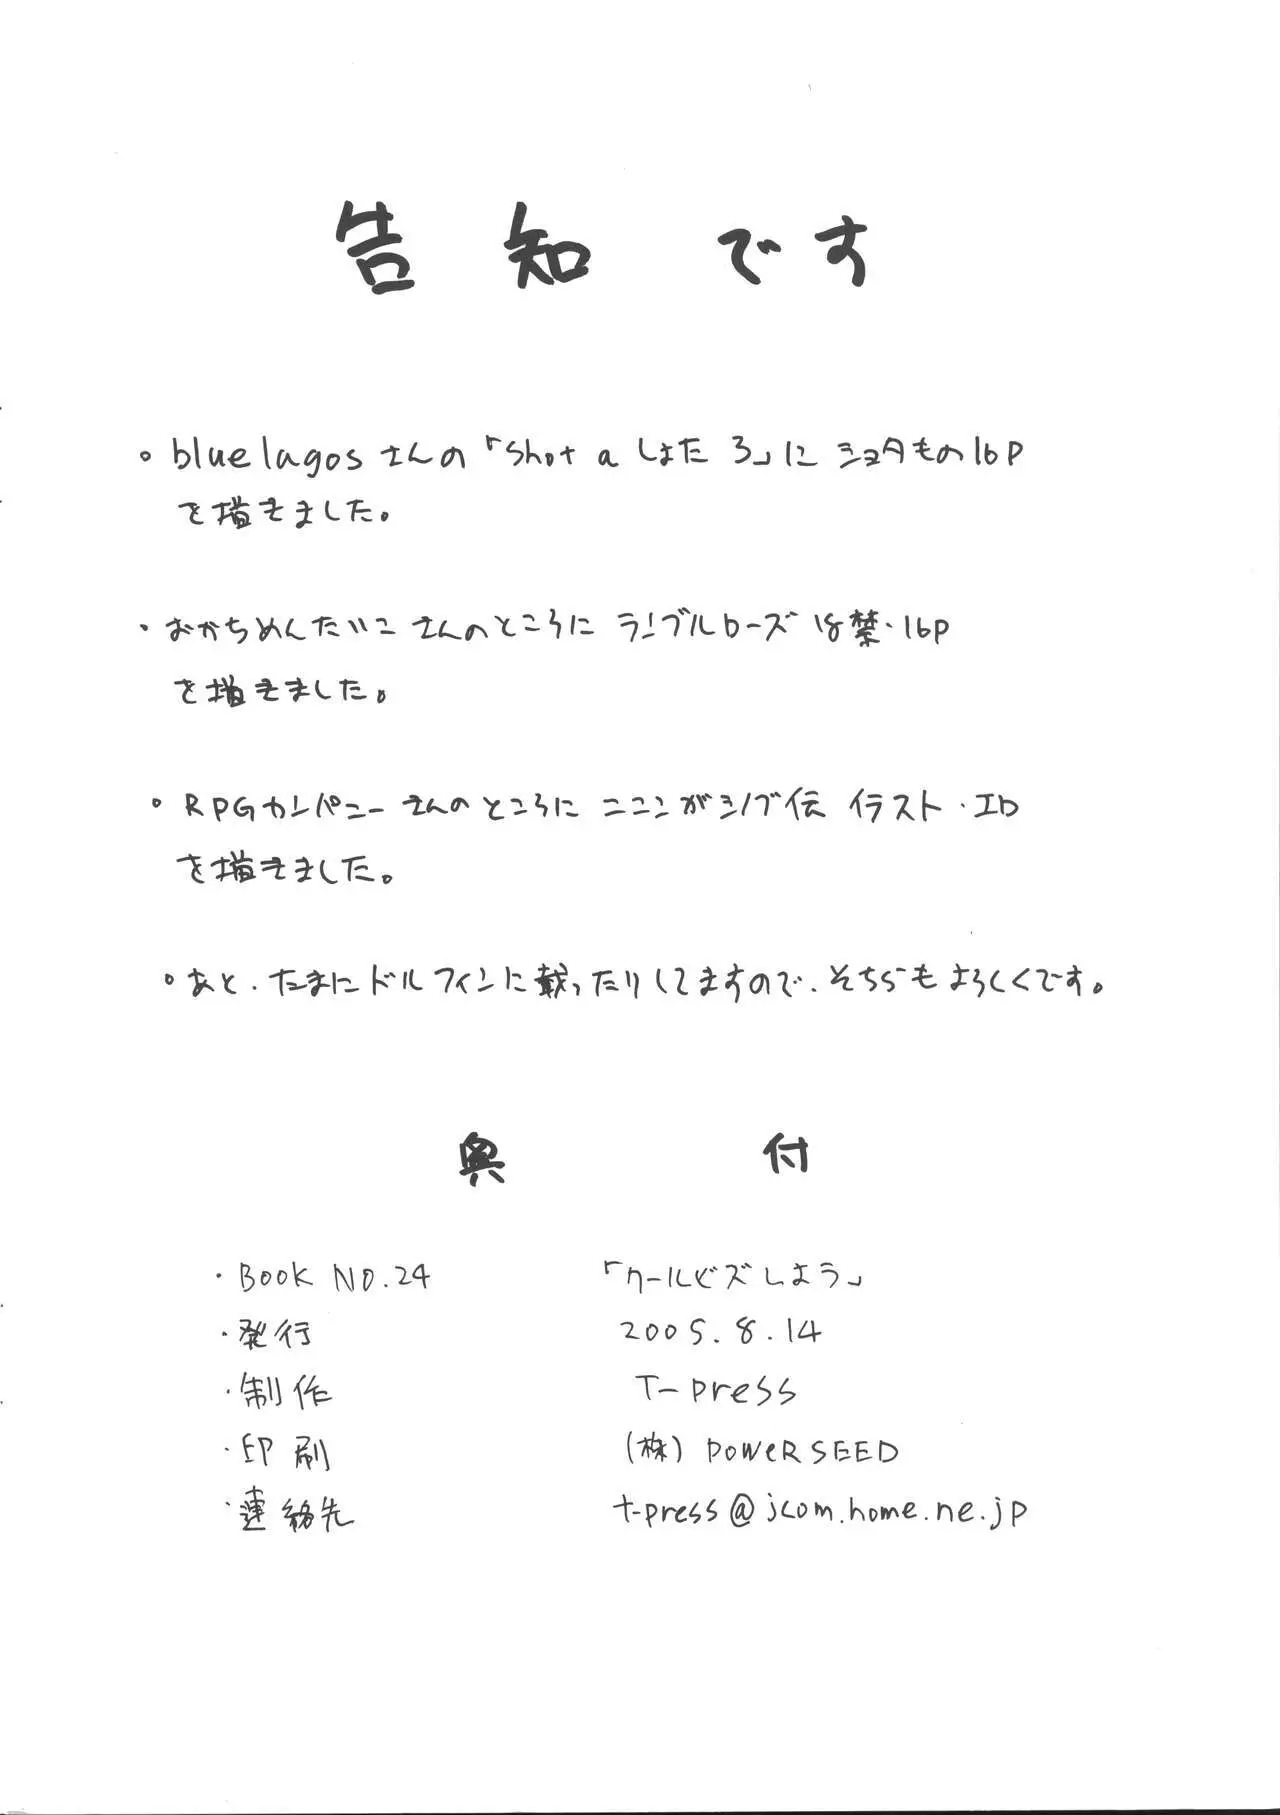 告知です
。bluelagosさんの「Shot a しょたろ」にショタもの16P
を描きました。
・おかちめんたいこさんのところにランブルローズ18禁・16P
を描きました。
。RPGカンパニーさんのところにニニンがシノブ伝 イラスト・エロ
を描きました。
。あと、たまにドルフィンに載ったりしてますので、そちらもよろしくです。
奥付
・BOOK NO.24 「クールビズしよう」
・発行 2005.8.14
・制作 T-press
・印刷 (株)POWER SEED
・連絡先 t-press@jcom.home.ne.jp